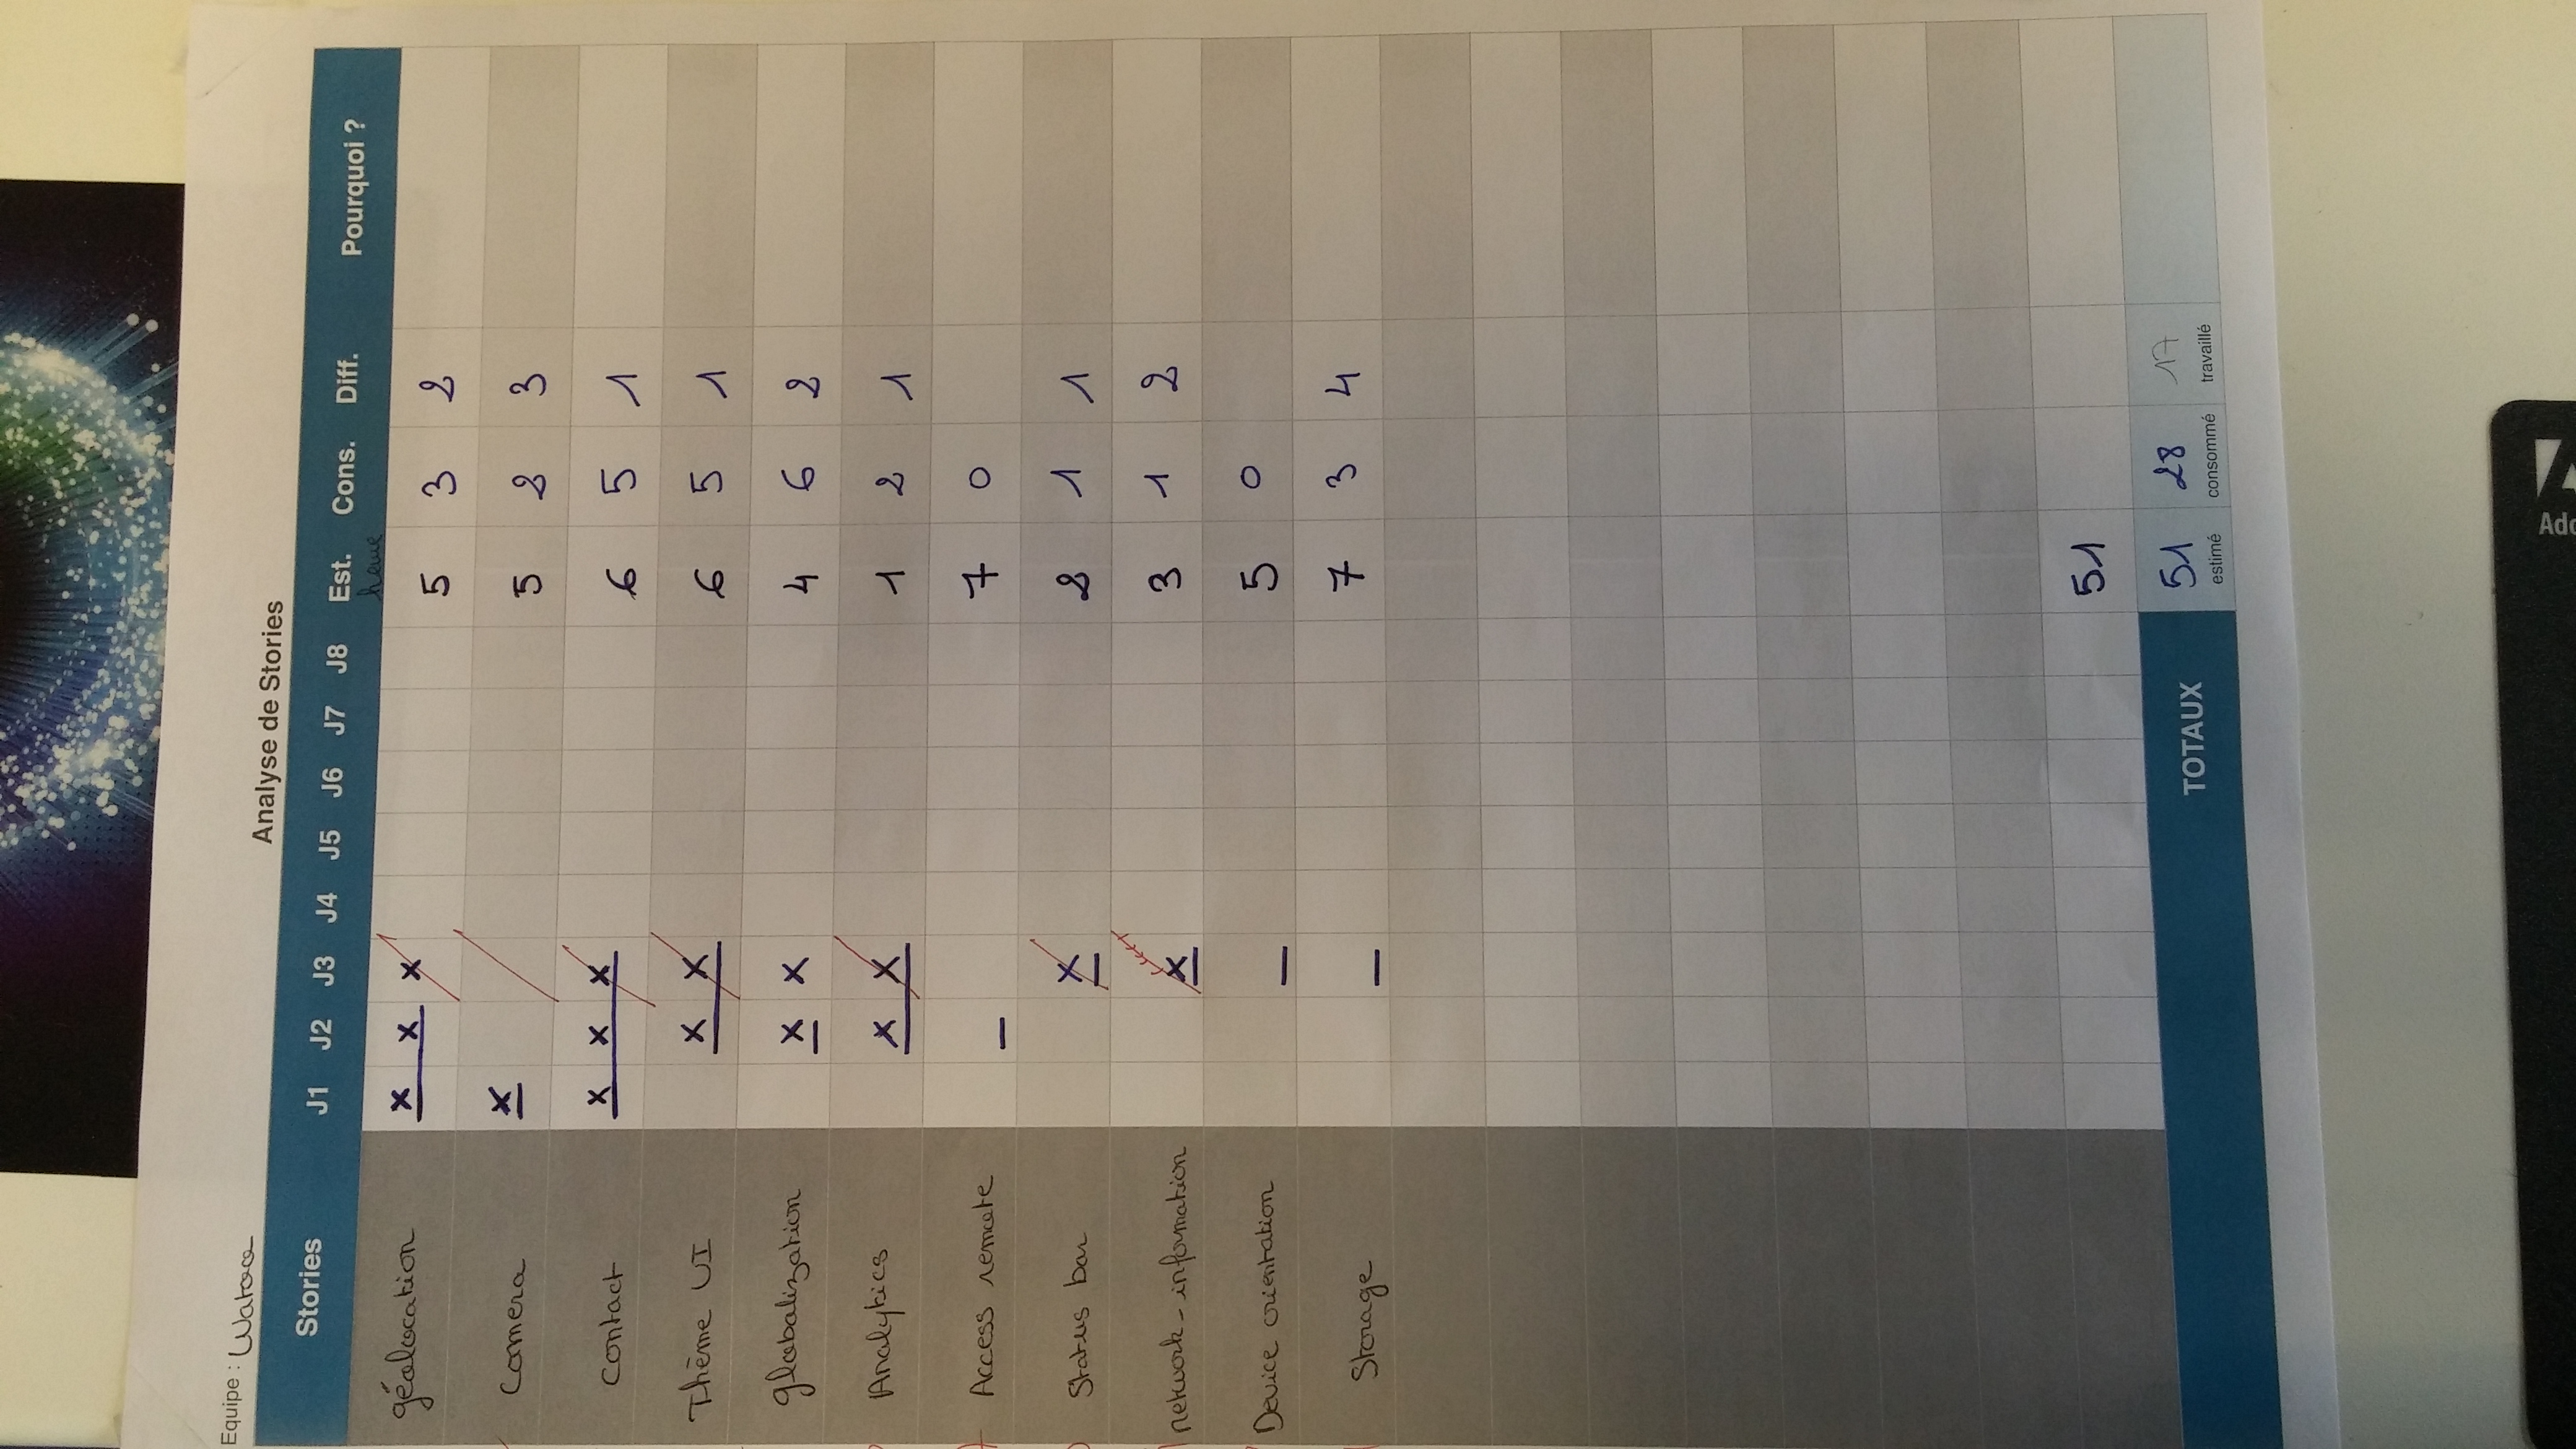 Equipe :
Analyse de Stories
Stories J1 J2 J3 J4 J5 J6 J7 J8 Est. Cons. Diff. Pourquoi ?
heure
géolocation x x x 5 3 2
Camera x 5 2 3
Contact x x x 6 5 1
Thème UI x x 6 5 1
globalization x x 4 6 2
Analytics x x 1 2 1
Access remote — 7 0
Status bar x 2 1 1
network-information x 3 1 2
Device orientation — 5 0
Storage — 7 3 4
51
TOTAUX 51 28 17
estimé consommé travaillé